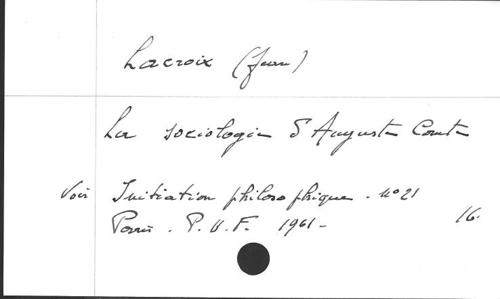 Lacroix (Jean)
La sociologie d'Auguste Comte
Voir Initiation philosophique. n°21
Paris. P.U.F. 1961- 16.